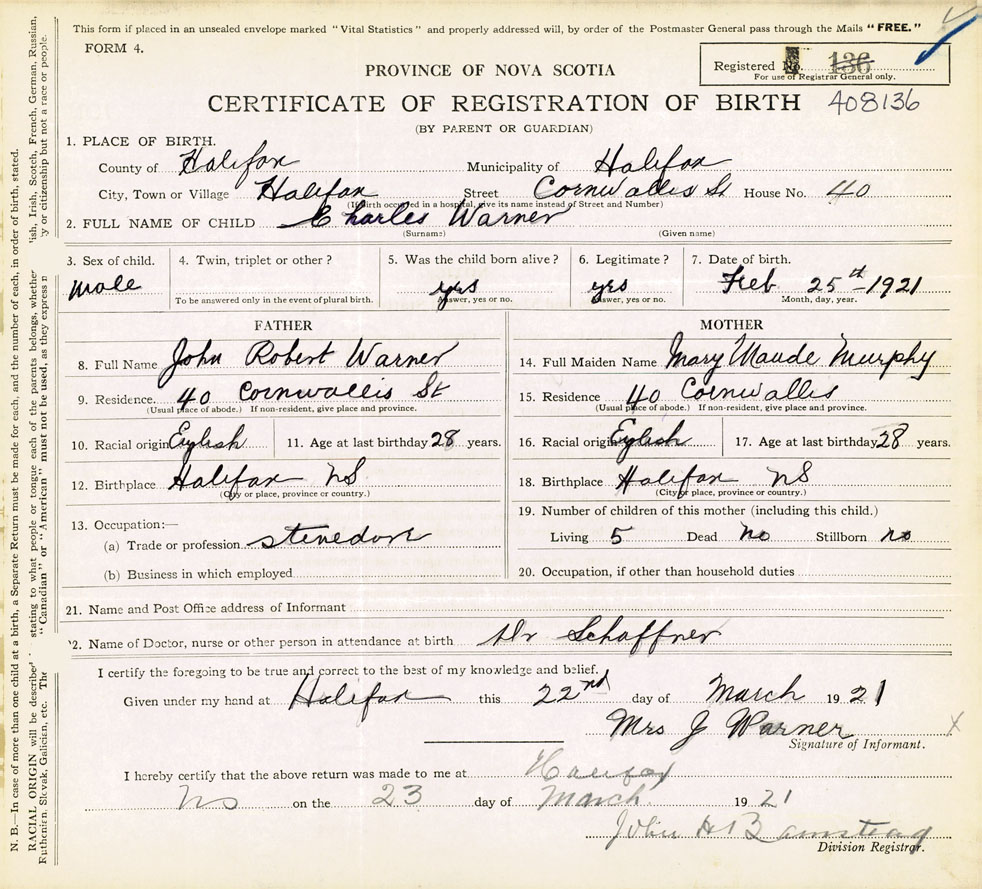 This form if placed in an unsealed envelope marked "Vital Statistics" and properly addressed will, by order of the Postmaster General pass through the Mails "FREE."
FORM 4.
Registered No. 136
For use of Registrar General only.
PROVINCE OF NOVA SCOTIA
CERTIFICATE OF REGISTRATION OF BIRTH 408136
(BY PARENT OR GUARDIAN)
1. PLACE OF BIRTH.
County of Halifax Municipality of Halifax
City, Town or Village Halifax Street Cornwallis St House No. 40
(If birth occurred in a hospital, give its name instead of Street and Number)
2. FULL NAME OF CHILD Charles Warner
(Surname) (Given name)
3. Sex of child. 4. Twin, triplet or other? 5. Was the child born alive? 6. Legitimate? 7. Date of birth.
male yes yes Feb 25th - 1921
To be answered only in the event of plural birth. Answer, yes or no. Answer, yes or no. Month, day, year.
FATHER MOTHER
8. Full Name John Robert Warner 14. Full Maiden Name Mary Maude Murphy
9. Residence. 40 Cornwallis St 15. Residence 40 Cornwallis
(Usual place of abode.) If non-resident, give place and province. (Usual place of abode.) If non-resident, give place and province.
10. Racial origin English 11. Age at last birthday 28 years. 16. Racial origin English 17. Age at last birthday 28 years.
12. Birthplace Halifax NS 18. Birthplace Halifax NS
(City or place, province or country.) (City or place, province or country.)
13. Occupation:— 19. Number of children of this mother (including this child.)
(a) Trade or profession stevedore Living 5 Dead no Stillborn no
(b) Business in which employed 20. Occupation, if other than household duties
21. Name and Post Office address of Informant
2. Name of Doctor, nurse or other person in attendance at birth Dr Schaffner
I certify the foregoing to be true and correct to the best of my knowledge and belief.
Given under my hand at Halifax this 22nd day of March 1921
Mrs J Warner
Signature of Informant.
I hereby certify that the above return was made to me at Halifax
NS on the 23 day of March 1921
John H Barnstead
Division Registrar.
N. B.—In case of more than one child at a birth, a Separate Return must be made for each, and the number of each, in order of birth, stated.
RACIAL ORIGIN will be described stating to what people or tongue each of the parents belongs, whether ish, Irish, Scotch, French, German, Russian,
Ruthenian, Slovak, Galician, etc. The "Canadian" or "American" must not be used, as they express n y or citizenship but not a race or people.